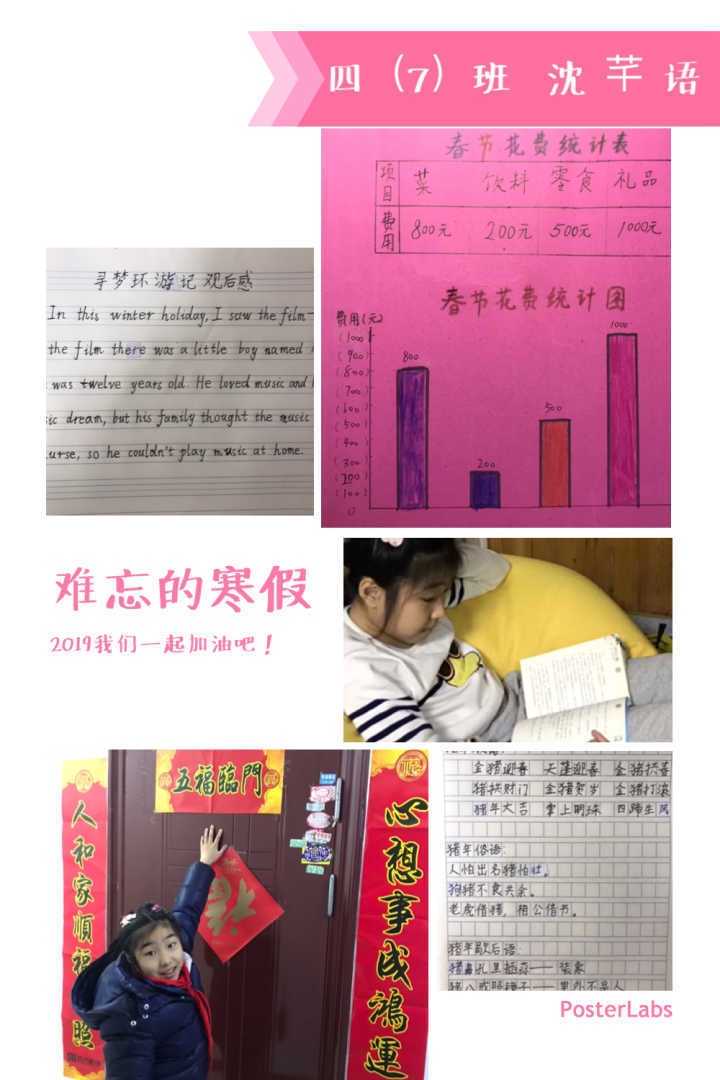 四（7）班 沈芊语
春节花费统计表
项目 菜 饮料 零食 礼品
费用 800元 200元 500元 1000元
春节花费统计图
费用(元)
(1000)
(900)
(800)
(700)
(600)
(500)
(400)
(300)
200
(100)
0
800
200
500
1000
寻梦环游记 观后感
In this winter holiday, I saw the film
the film there was a little boy named
was twelve years old. He loved music and
ic dream, but his family thought the music
urse, so he couldn't play music at home.
难忘的寒假
2019我们一起加油吧！
五福臨門
人和家順福 照
心想事成鴻運
金猪迎春 天蓬迎喜 金猪拱喜
猪拱财门 金猪贺岁 金猪打滚
猪年大吉 掌上明珠 四蹄生风
猪年俗语:
人怕出名猪怕壮。
狗猪不食其余。
老虎借猪，相公借书。
猪年歇后语:
猪鼻孔里插葱——装象
猪八戒照镜子——里外不是人
PosterLabs